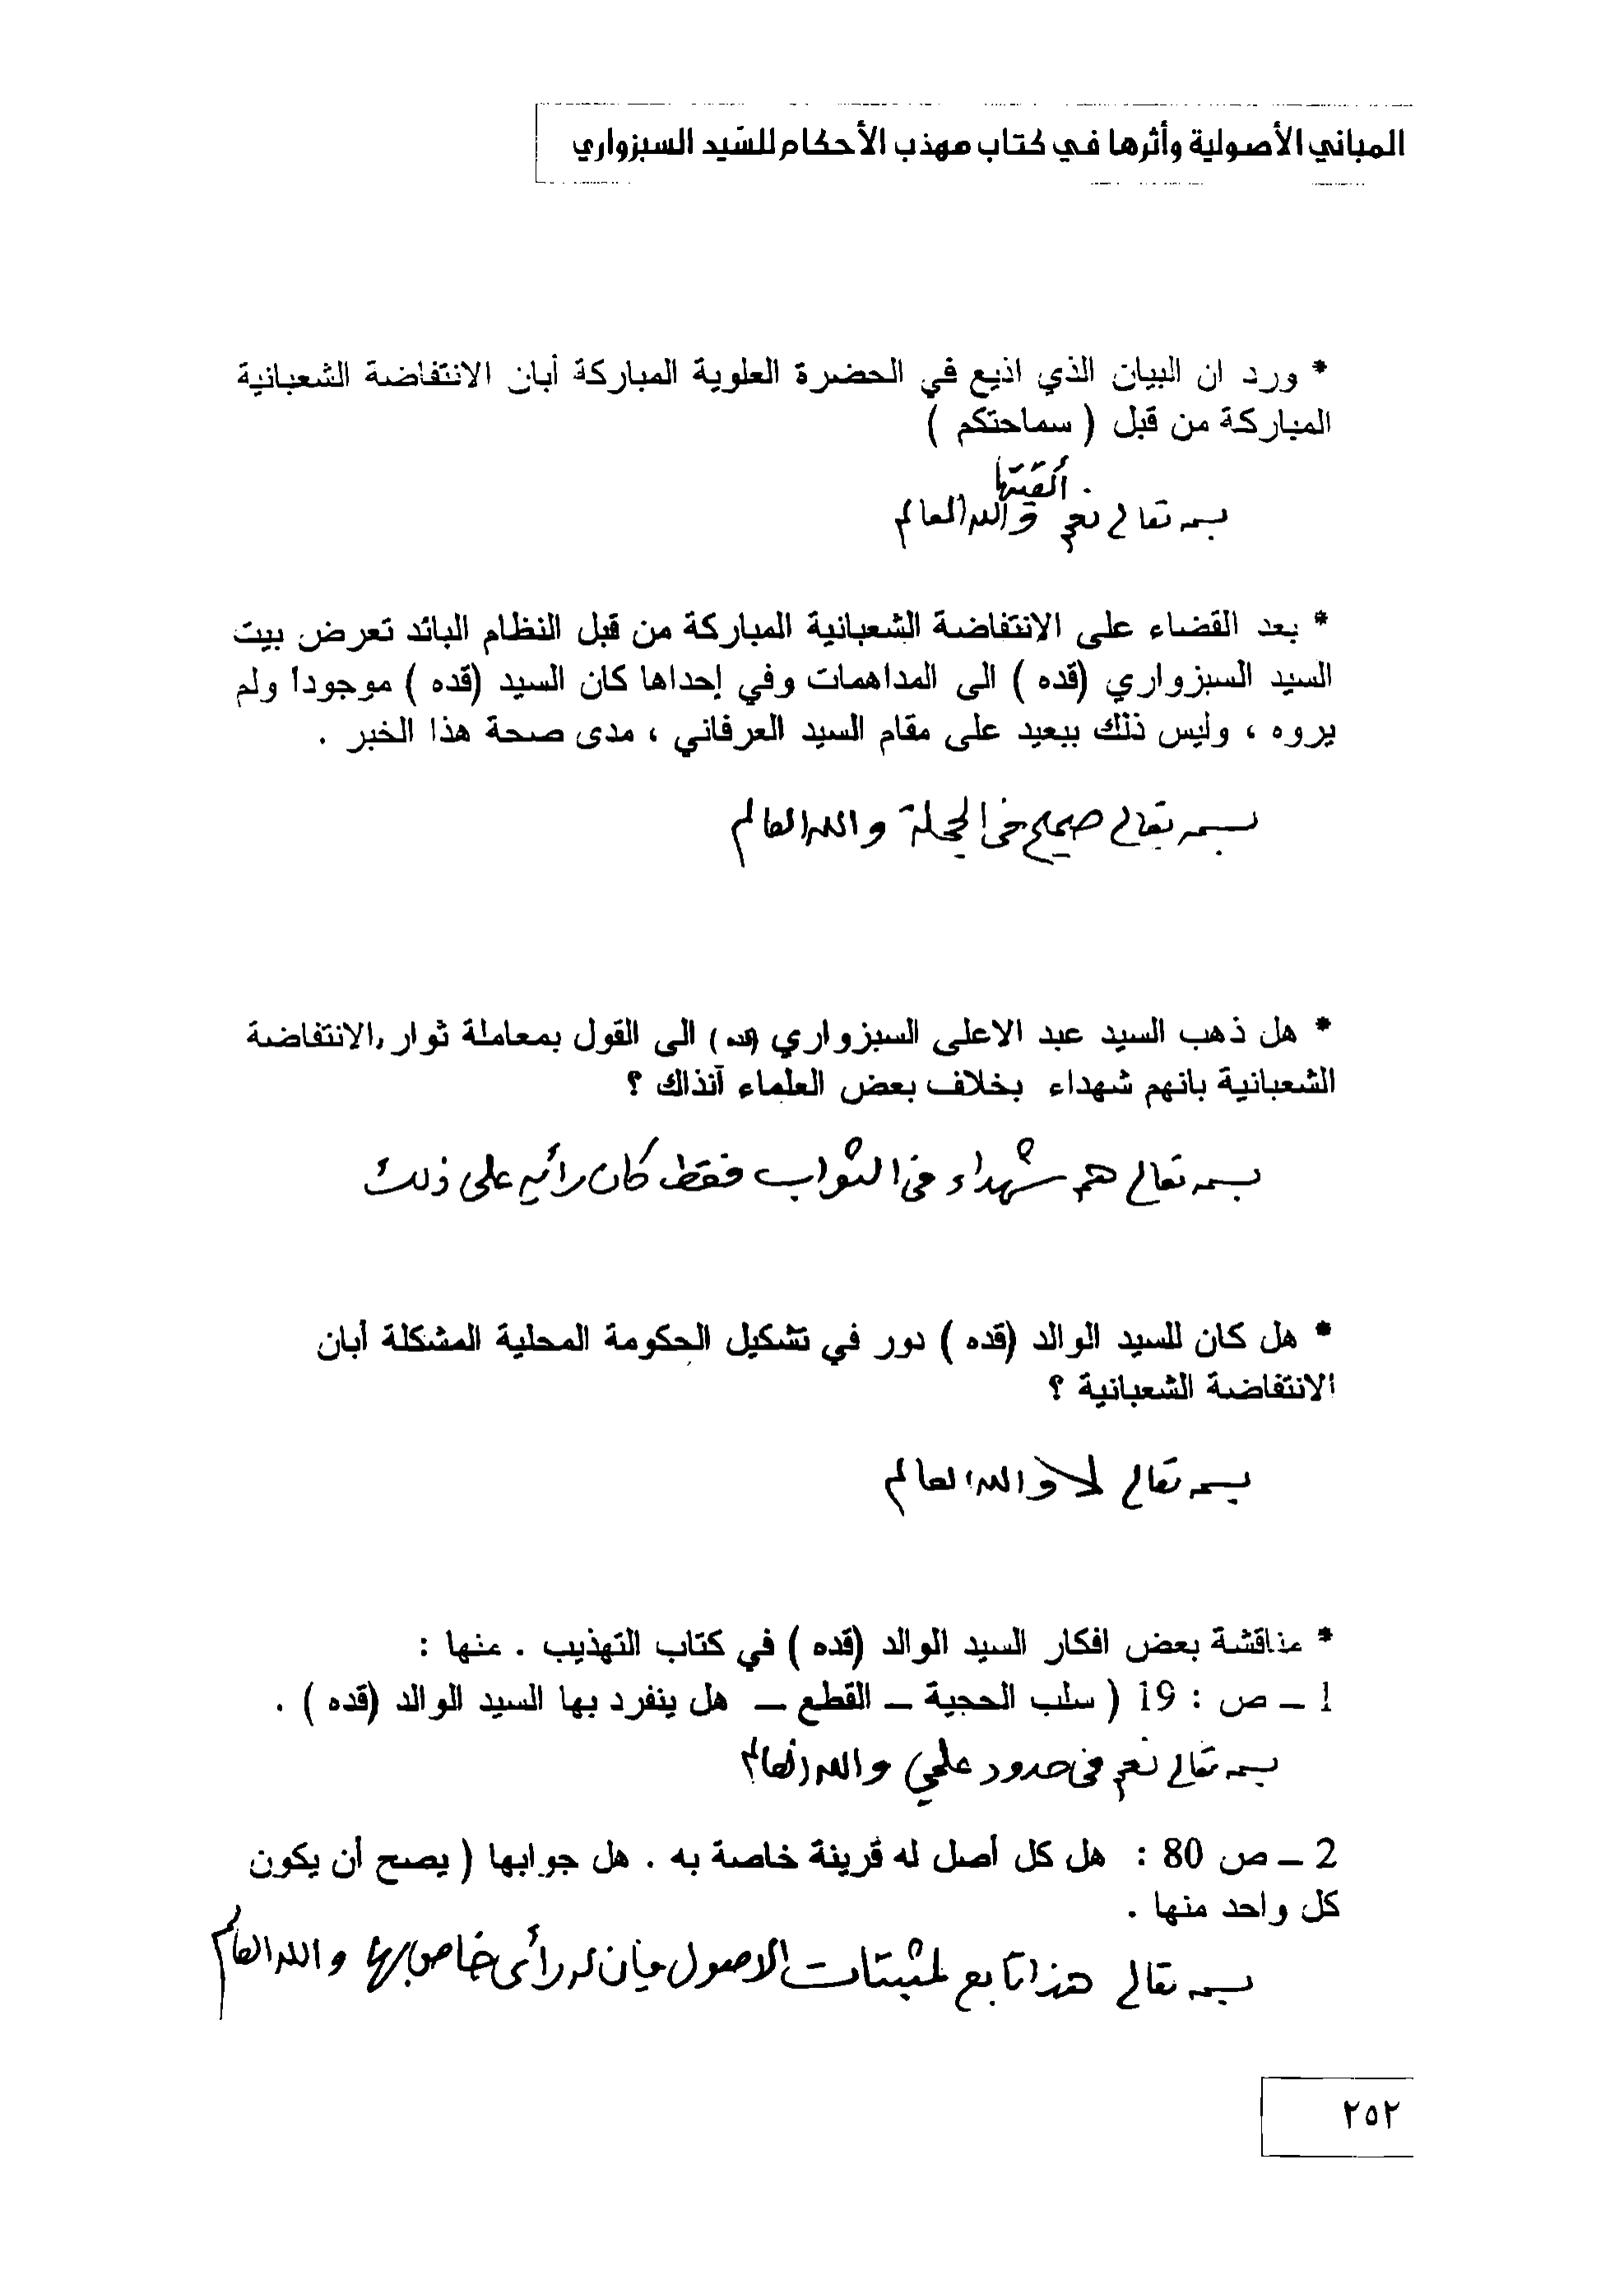 المباني الأصولية وأثرها في كتاب مهذب الأحكام للسَيد السبزواري
* ورد ان البيان الذي اذيع في الحضرة العلوية المباركة أبان الانتفاضة الشعبانية
المباركة من قبل ( سماحتكم )
ألقيتها
بسمه تعالى نعم والله العالم
* بعد القضاء على الانتفاضة الشعبانية المباركة من قبل النظام البائد تعرض بيت
السيد السبزواري (قده ) الى المداهمات وفي إحداها كان السيد (قده ) موجودا ولم
يروه ، وليس ذلك ببعيد على مقام السيد العرفاني ، مدى صحة هذا الخبر .
بسمه تعالى صحيح في الجملة والله العالم
* هل ذهب السيد عبد الاعلى السبزواري (قده ) الى القول بمعاملة ثوار الانتفاضة
الشعبانية بانهم شهداء بخلاف بعض العلماء آنذاك ؟
بسمه تعالى هم شهداء في الثواب فقط كان رأيه على ذلك
* هل كان للسيد الوالد (قده ) دور في تشكيل الحكومة المحلية المشكلة أبان
الانتفاضة الشعبانية ؟
بسمه تعالى لا والله العالم
* مناقشة بعض افكار السيد الوالد (قده ) في كتاب التهذيب . منها :
1 – ص : 19 ( سلب الحجية – القطع – هل ينفرد بها السيد الوالد (قده ) .
بسمه تعالى نعم في حدود علمي والله العالم
2 – ص 80 : هل كل أصل له قرينة خاصة به . هل جوابها ( يصح أن يكون
كل واحد منها .
بسمه تعالى هذا تابع لمثبتات الاصول فإن له رأي خاص بها والله العالم
٢٥٢